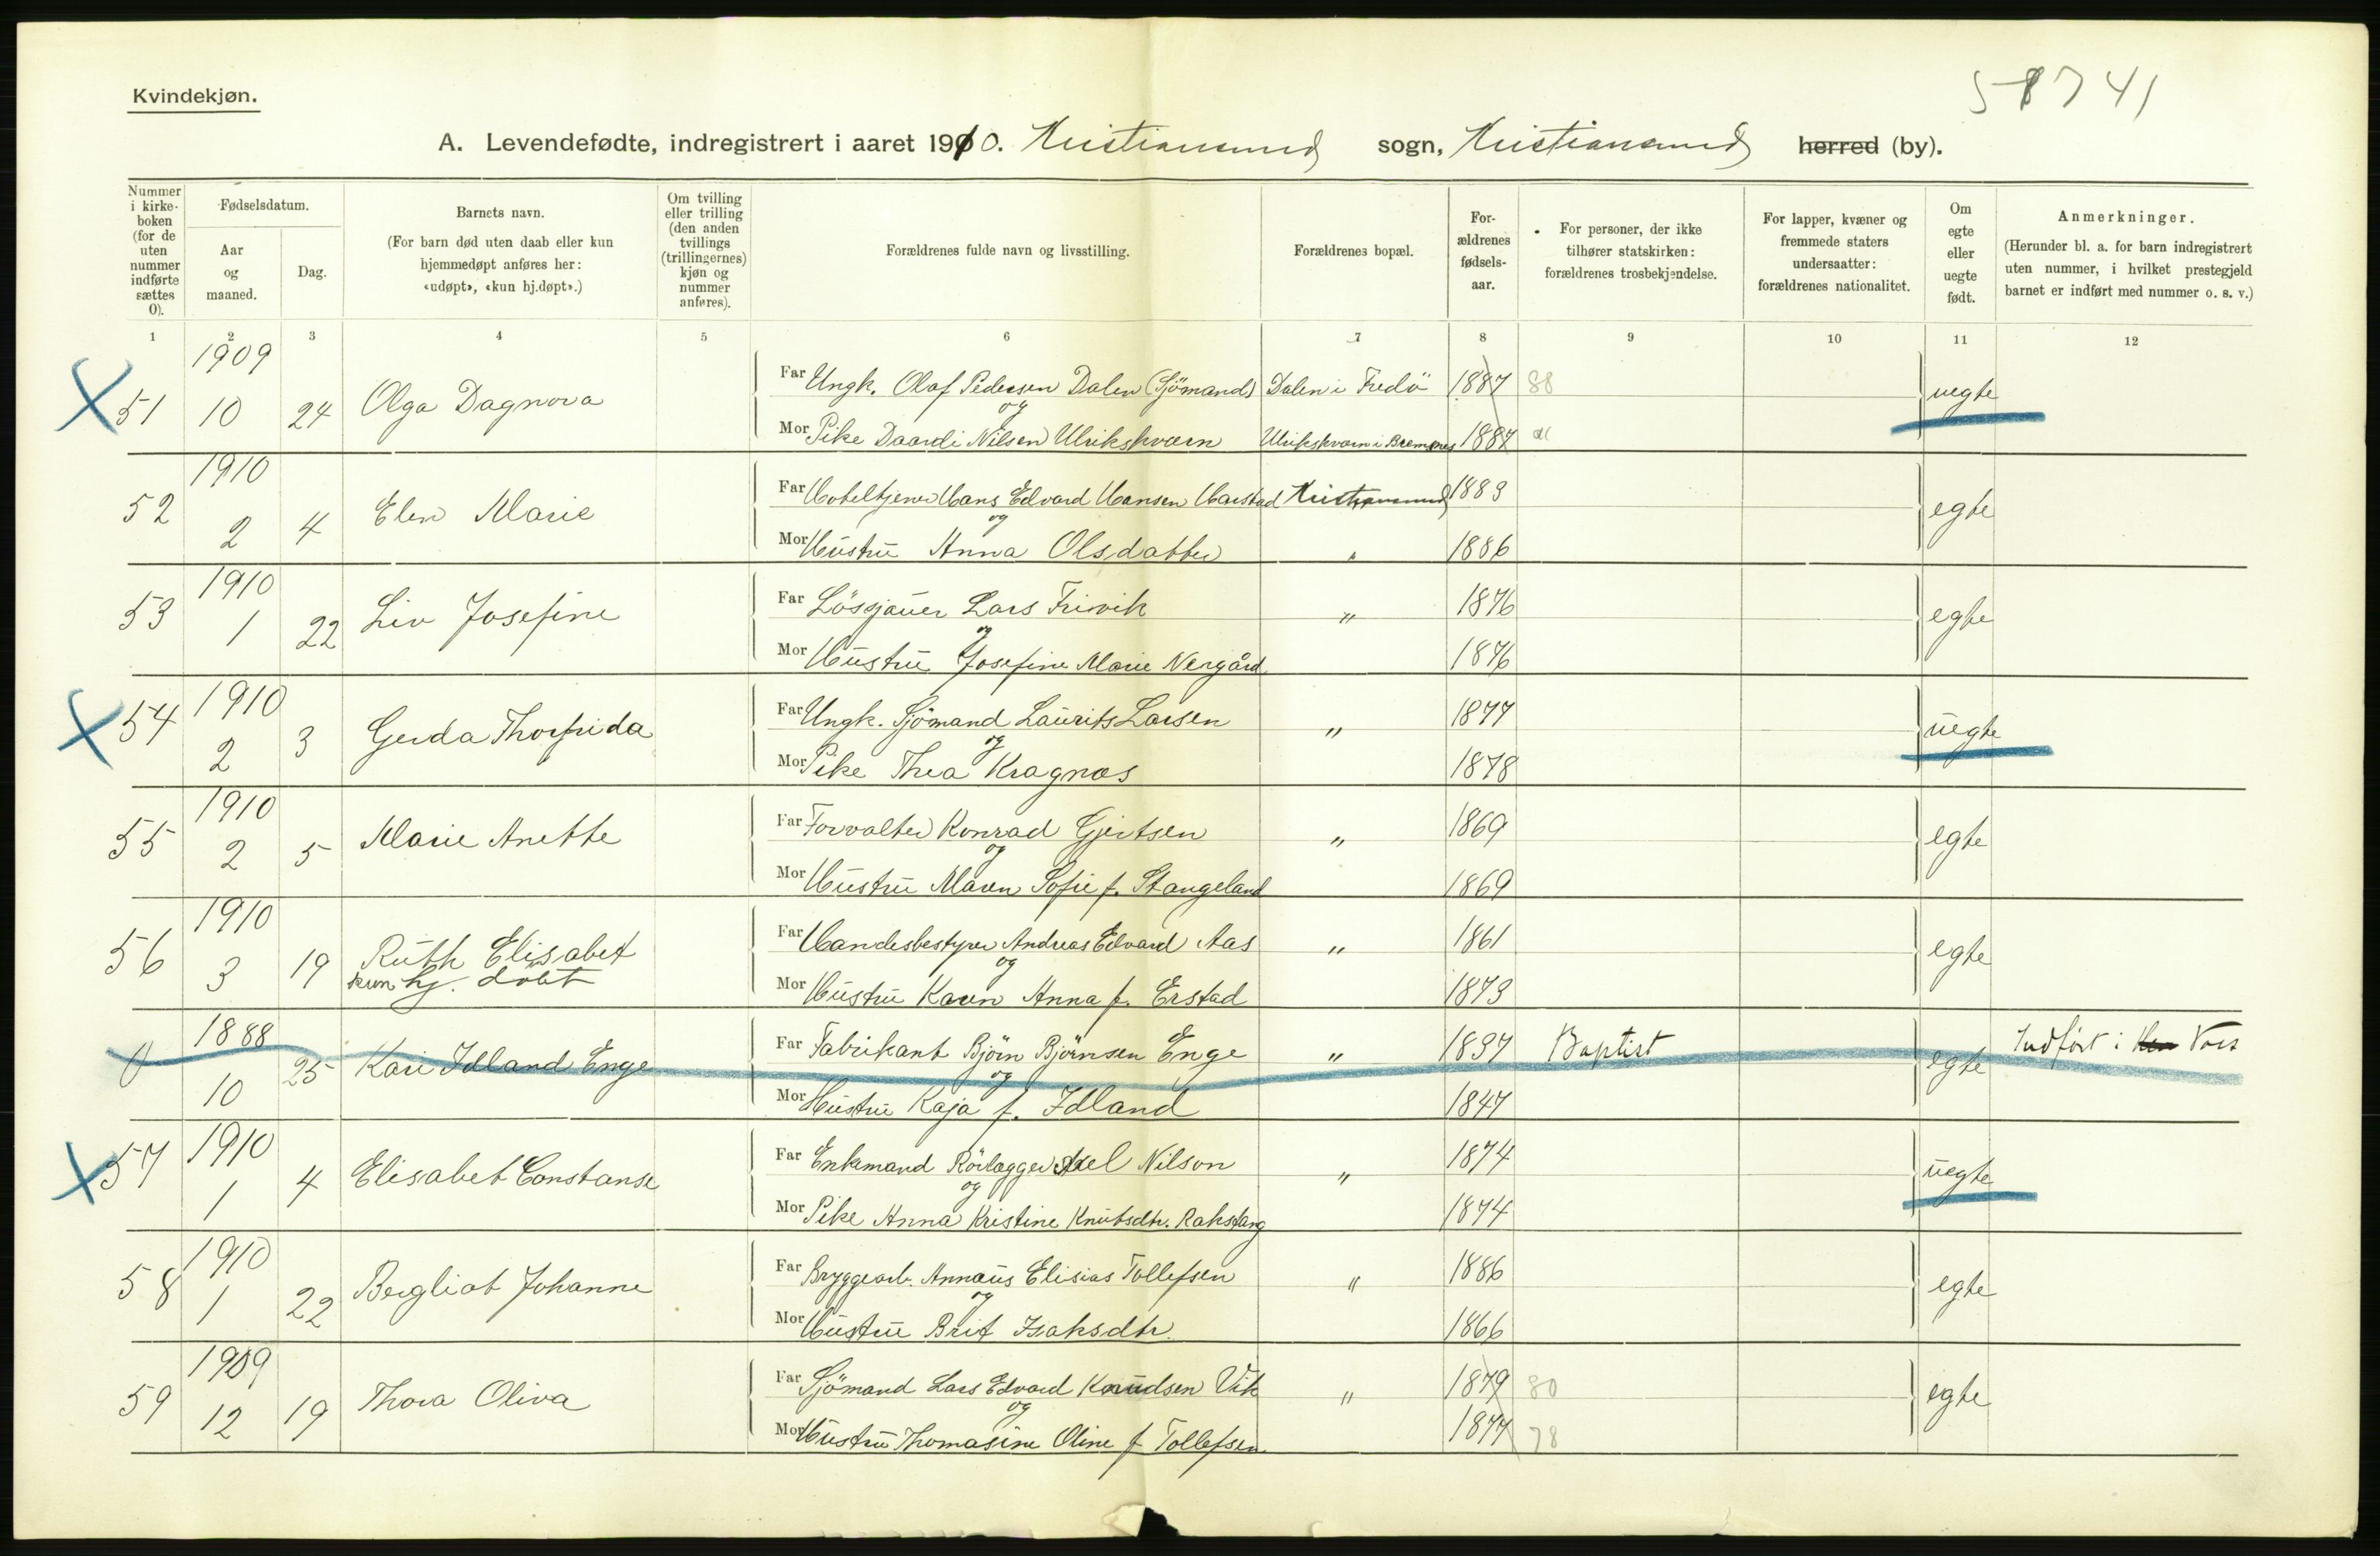 58741
Kvindekjøn.
A. Levendefødte, indregistrert i aaret 1910. Kristiansund sogn, Kristiansund herred (by).
Nummer i kirkeboken (for de uten nummer indførte sættes 0).
Fødselsdatum.
Aar og maaned.
Dag.
Barnets navn.
(For barn død uten daab eller kun hjemmedøpt anføres her: «udøpt», «kun hj.døpt».)
Om tvilling eller trilling (den anden tvillings (trillingernes) kjøn og nummer anføres).
Forældrenes fulde navn og livsstilling.
Forældrenes bopæl.
Forældrenes fødselsaar.
For personer, der ikke tilhører statskirken: forældrenes trosbekjendelse.
For lapper, kvæner og fremmede staters undersaatter: forældrenes nationalitet.
Om egte eller uegte født.
Anmerkninger.
(Herunder bl. a. for barn indregistrert uten nummer, i hvilket prestegjeld barnet er indført med nummer o. s. v.)
1 2 3 4 5 6 7 8 9 10 11 12
1909
Far Ungk. Olaf Pedersen Dalen (Sjömand) Dalen i Fredö 1887 88
51 10 24 Olga Dagnora og uegte
Mor Pike Daardi Nilsen Ulrikskværn Ulrikskværn i Bremsnes 1887
1910
Far Hoteltjener Hans Edvard Hansen Harstad Kristiansund 1883
52 2 4 Elen Marie og egte
Mor Hustru Anna Olsdatter " 1886
1910
Far Lösgjauer Lars Frivik " 1876
53 1 22 Liv Josefine og egte
Mor Hustru Josefine Marie Nergård 1876
1910
Far Ungk. Sjömand Laurits Larsen " 1877
54 2 3 Gerda Thorfrida og uegte
Mor Pike Thea Kragnæs 1878
1910
Far Forvalter Konrad Gjertsen " 1869
55 2 5 Marie Anette og egte
Mor Hustru Maren Sofie f. Stangeland 1869
1910
Far Handesbestyrer Andreas Edvard Aas " 1861
56 3 19 Ruth Elisabet og egte
kun hj. döbt
Mor Hustru Karen Anna f. Erstad 1873
1888
Far Fabrikant Björn Björnsen Enge " 1837 Baptist Indfört i Vors
0 10 25 Kari Idland Enge og egte
Mor Hustru Kaja f. Idland 1847
1910
Far Enkemand Rörlægger Axel Nilson " 1874
57 1 4 Elisabet Constanse og uegte
Mor Pike Anna Kristine Knutsdtr. Rakstang 1874
1910
Far Bryggearb. Annæus Elisias Tollefsen " 1886
58 1 22 Bergliot Johanne og egte
Mor Hustru Brit Isaksdtr. 1866
1909
Far Sjömand Lars Edvard Knudsen Vik " 1879 80
59 12 19 Thora Oliva og egte
Mor Hustru Thomasine Oline f Tollefsen 1877 78